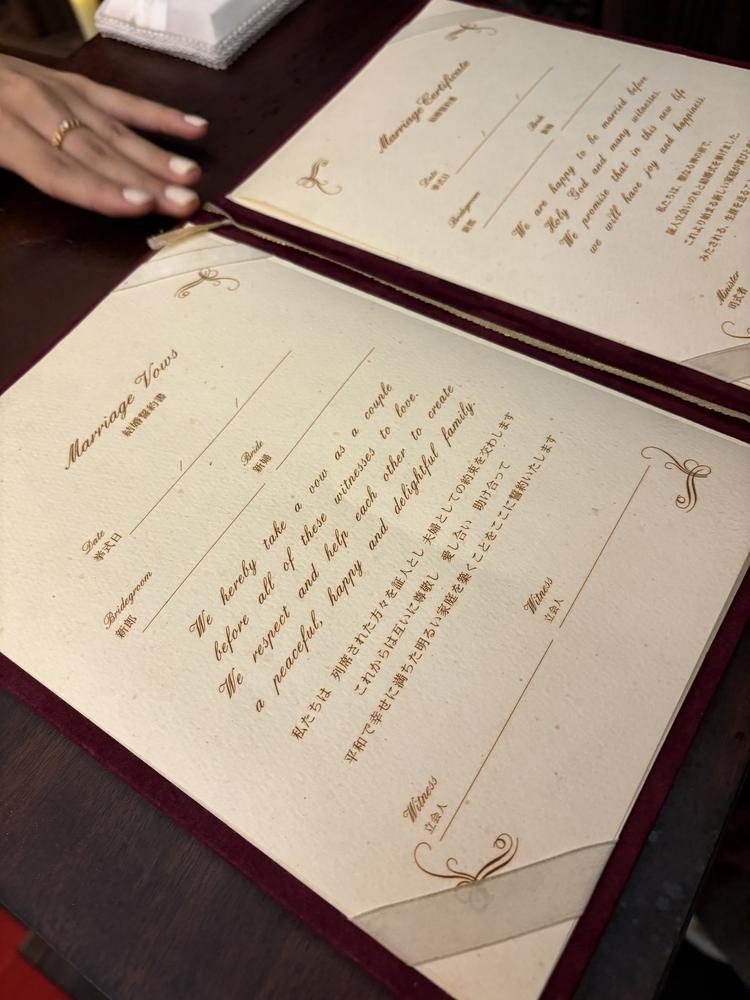 Marriage Certificate
結婚証明書
Date
挙式日
/ /
Bridegroom
新郎
Bride
新婦
We are happy to be married before
Holy God and many witnesses.
We promise that in this new life
we will have joy and happiness.
私たちは、聖なる神の前で、
証人立会いのもと結婚を挙げました。
これより始まる新しい
みたされる、生涯を送
Minister
司式者
Marriage Vows
結婚誓約書
Date
挙式日
/ /
Bridegroom
新郎
Bride
新婦
We hereby take a vow as a couple
before all of these witnesses to love.
We respect and help each other to create
a peaceful, happy and delightful family.
私たちは 列席された方々を証人とし 夫婦としての約束を交わします
これからは互いに尊敬し 愛し合い 助け合って
平和で幸せに満ちた明るい家庭を築くことをここに誓約いたします
Witness
立会人
Witness
立会人